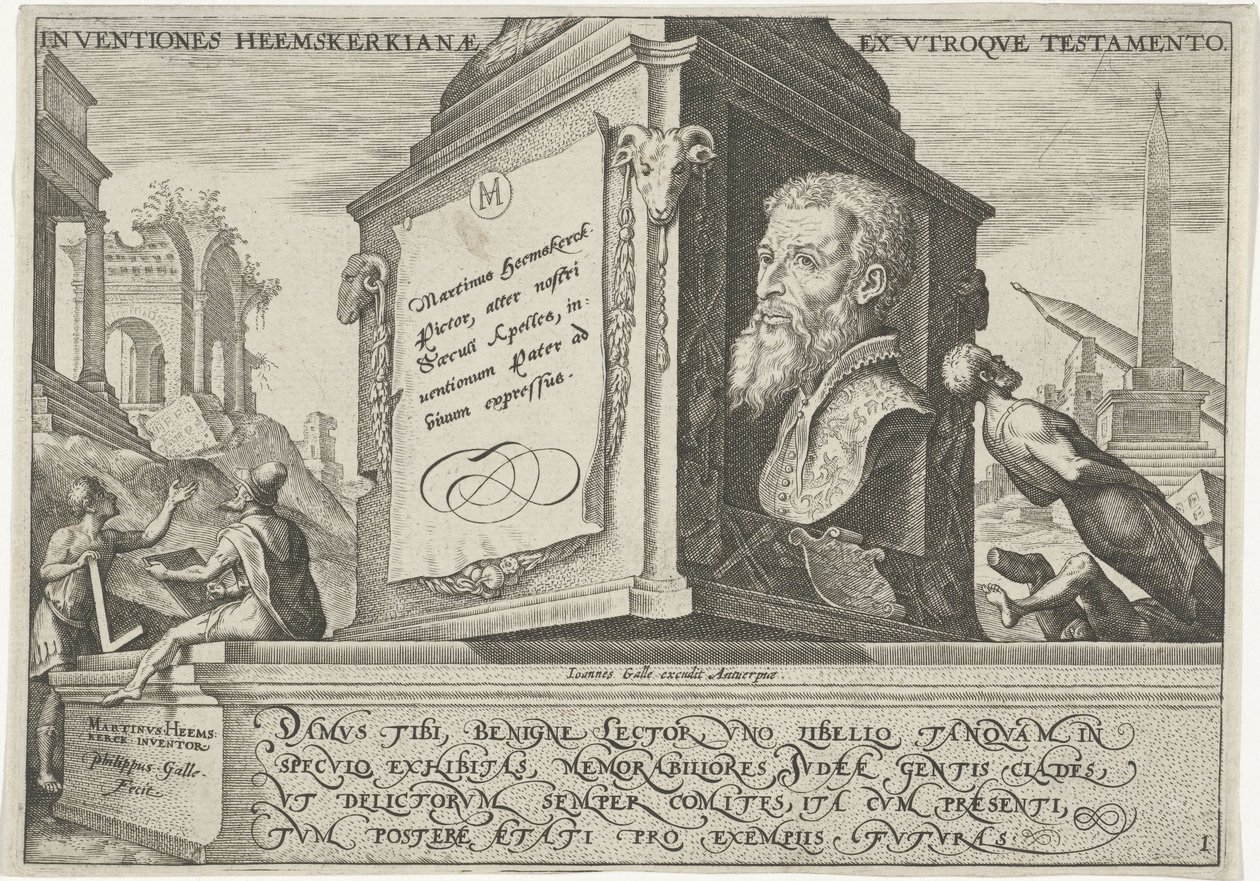 INVENTIONES HEEMSKERKIANÆ EX VTROQVE TESTAMENTO.
HM
Martinus Heemskerck.
Pictor, alter nostri
Sæculi Apelles, in-
uentionum Pater ad
viuum expressus.
Ioannes Galle excudit Antuerpiæ.
MARTINVS HEEMS:
KERCK INVENTOR
Philippus Galle.
Fecit.
DAMVS TIBI, BENIGNE LECTOR, VNO LIBELLO TANQVAM IN
SPECVLO EXHIBITAS, MEMORABILIORES IVDEÆ GENTIS CLADES,
VT DELICTORVM SEMPER COMITES, ITA CVM PRÆSENTI,
TVM POSTERÆ ÆTATI PRO EXEMPLIS FVTVRAS.
1